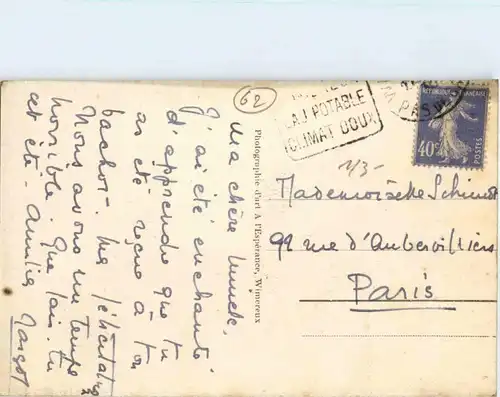 62
EAU POTABLE
CLIMAT DOUX
P.-DE-C.
REPUBLIQUE FRANÇAISE
40c
POSTES
1/3-
Mademoiselle Schmidt
92 rue d'Aubervilliers
Paris
Photographie d'art A l'Espérance, Wimereux
Ma chère
J'ai été enchantée
d'apprendre que tu
as été reçue à ton
bachot. Mes félicitations
Nous avons un temps
horrible. Que fais-tu
cet été. Amitiés
Margot